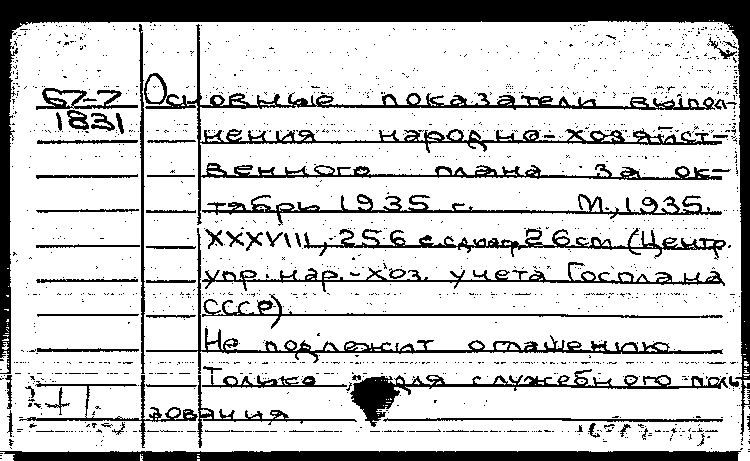 67-7
1831
Основные показатели выпол-
нения народно-хозяйст-
венного плана за ок-
тябрь 1935 г. М., 1935.
XXXVIII, 256 с. 26cm (Центр.
упр. нар.-хоз. учета Госплана
СССР).
Не подлежит оглашению
Только для служебного поль
зования.